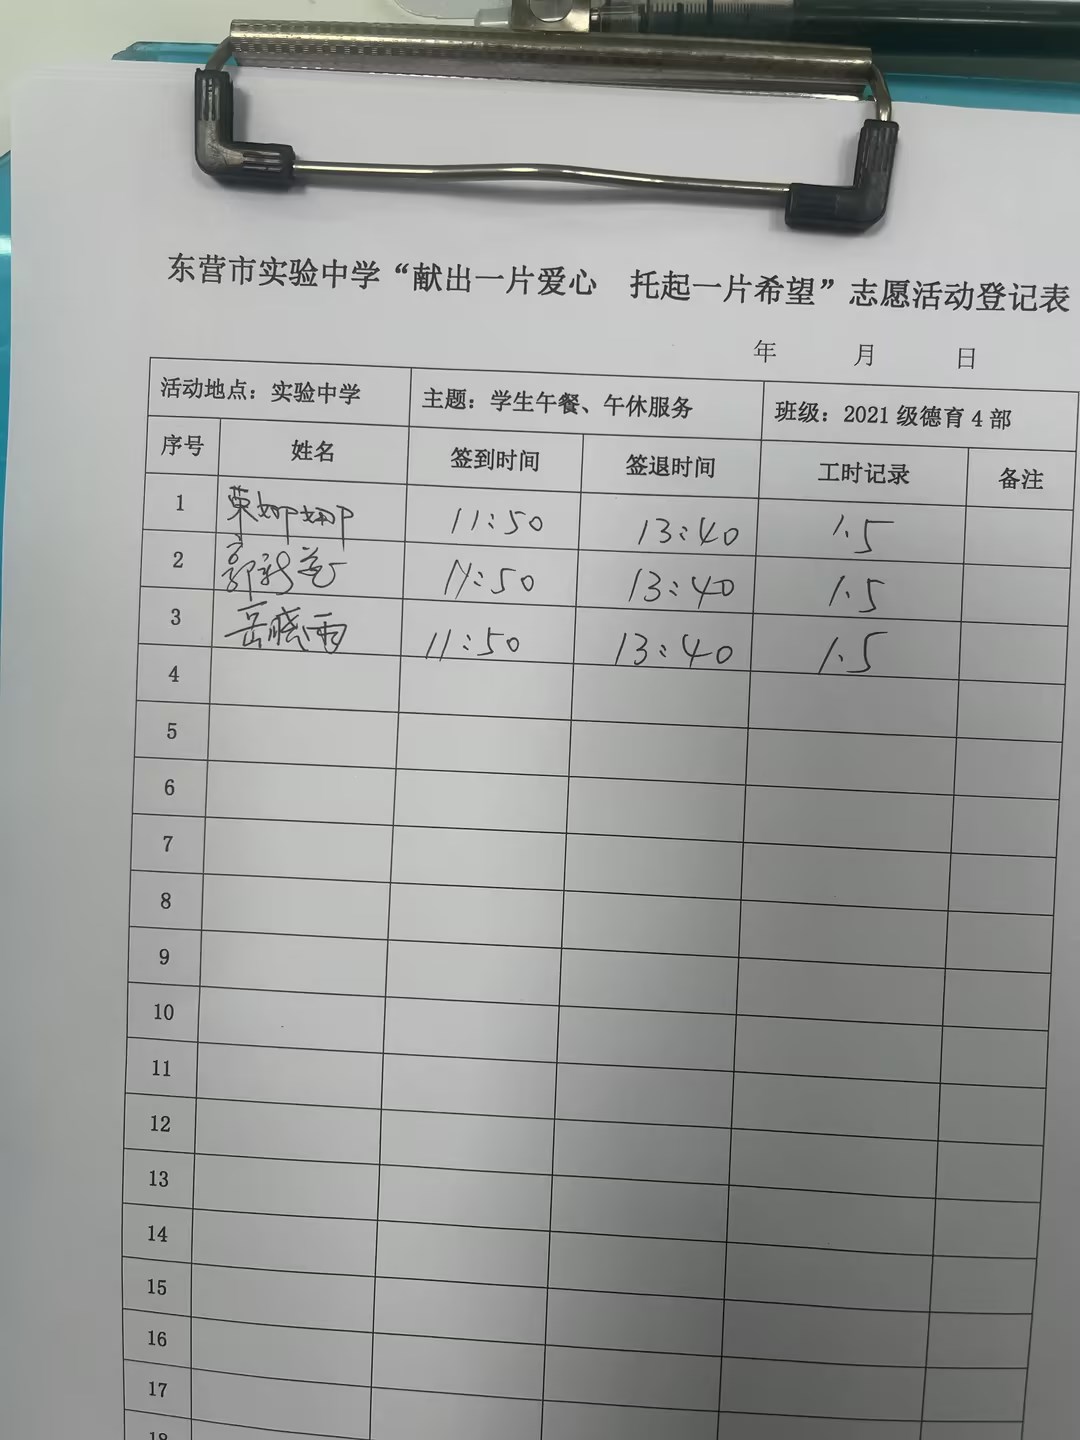 东营市实验中学“献出一片爱心 托起一片希望”志愿活动登记表
年 月 日
活动地点：实验中学 主题：学生午餐、午休服务 班级：2021级德育4部
序号 姓名 签到时间 签退时间 工时记录 备注
1 荣娜娜 11:50 13:40 1.5
2 郭新 11:50 13:40 1.5
3 岳晓雨 11:50 13:40 1.5
4
5
6
7
8
9
10
11
12
13
14
15
16
17
18